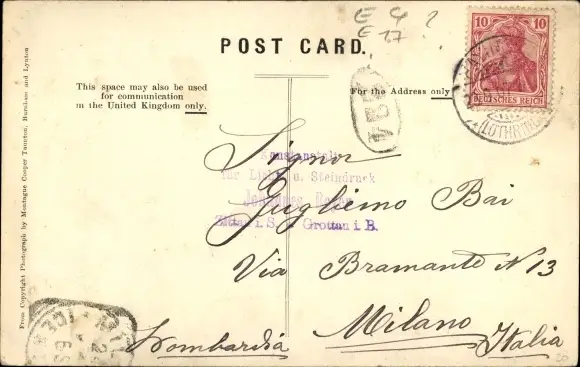 E 4 ?
E 27
POST CARD.
This space may also be used
for communication
in the United Kingdom only.
For the Address only
10 10
DEUTSCHES REICH
(LOTHR
Signor
Kunstanstalt
für Licht u. Steindruck
Guglielmo Bai
Zittau i. S. Grottau i. B.
Via Bramante N 13
Milano
Lombardia Italia
From Copyright Photograph by Montague Cooper Taunton, Burnham and Lynton